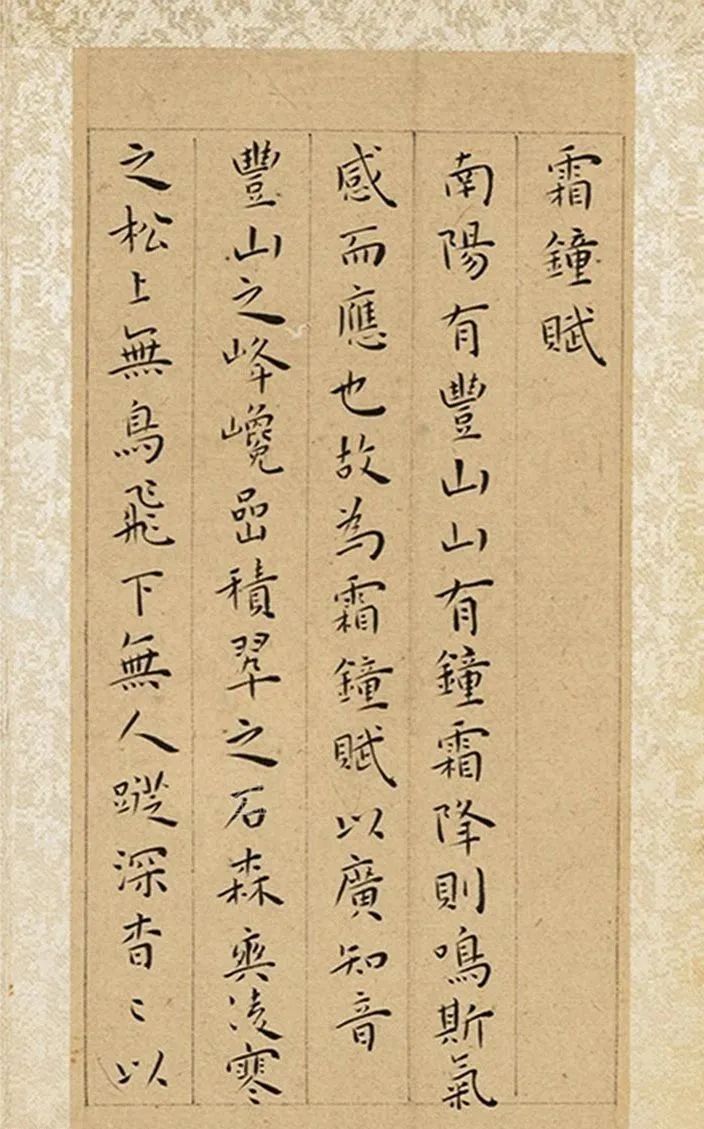 霜鐘賦
南陽有豐山山有鐘霜降則鳴斯氣
感而應也故為霜鐘賦以廣知音
豐山之峰巉嵒積翠之石森爽凌寒
之松上無鳥飛下無人蹤深杳〻以